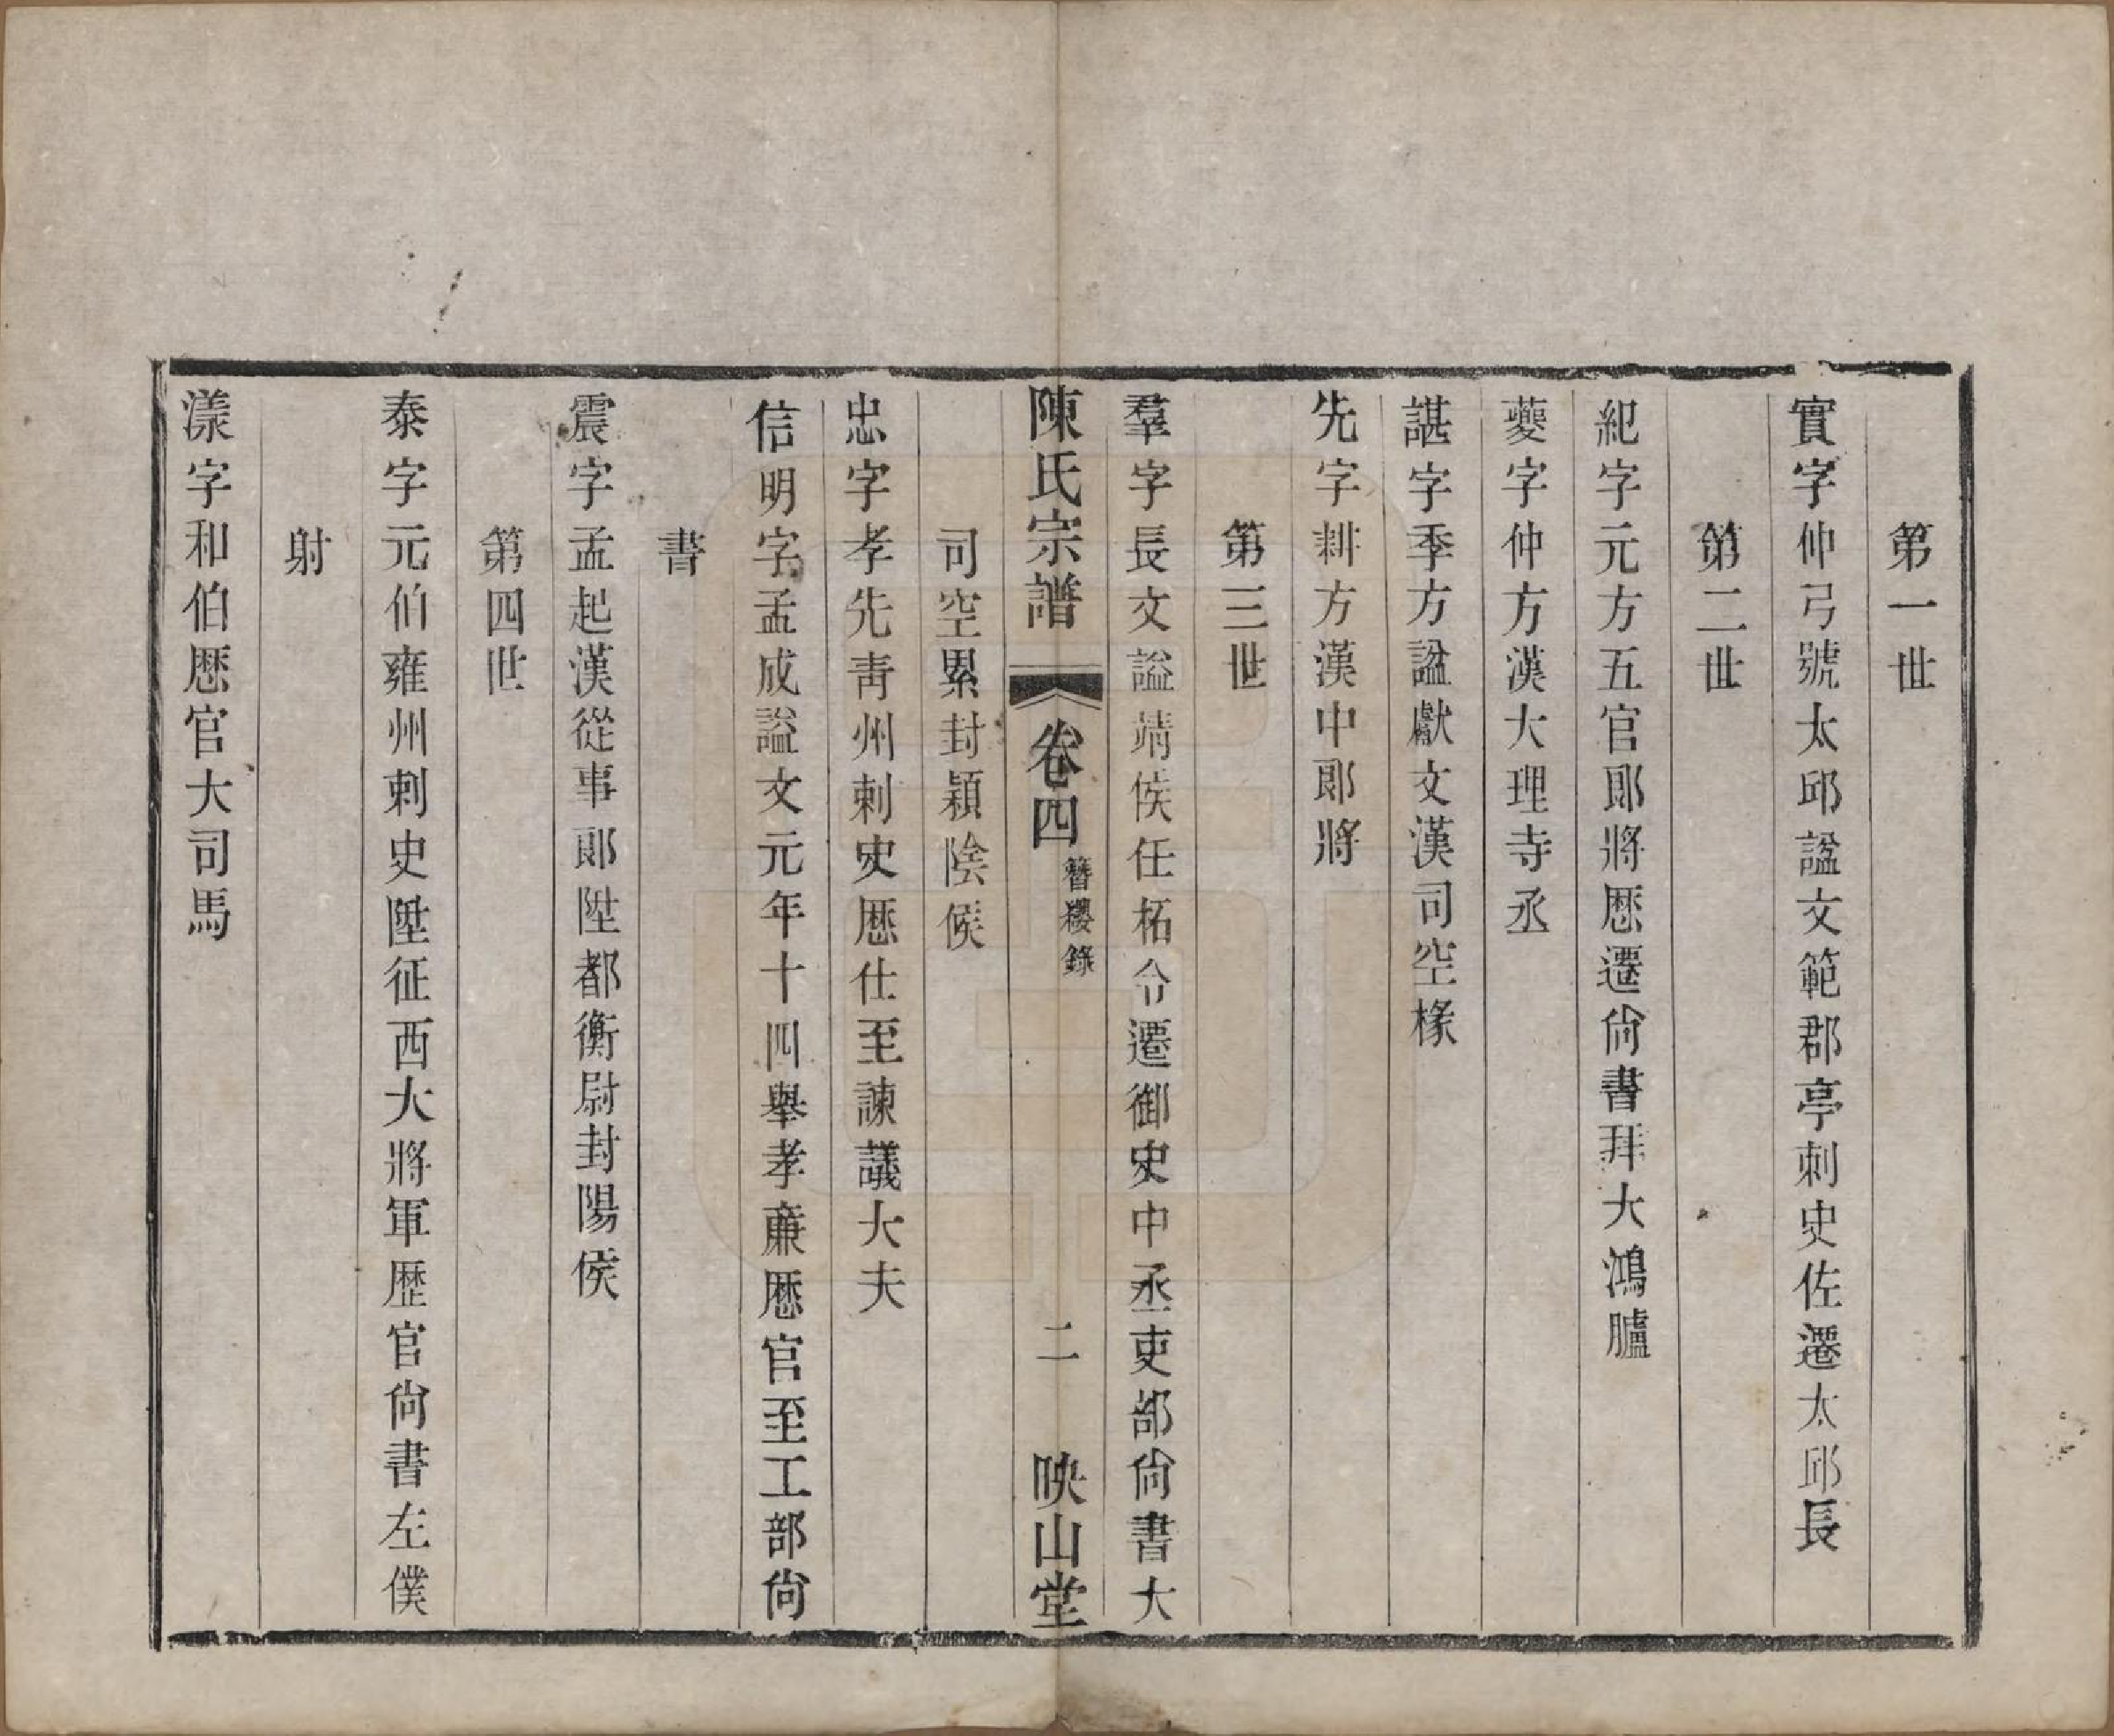 第一世
實字仲弓號太邱諡文範郡亭刺史佐遷太邱長
第二世
紀字元方五官郎將歷遷尙書拜大鴻臚
夔字仲方漢大理寺丞
諶字季方諡獻文漢司空椽
先字耕方漢中郎將
第三世
羣字長文諡靖侯任柘令遷御史中丞吏部尙書大
司空累封潁陰侯
陳氏宗譜 卷四 簪纓錄 二 映山堂
忠字孝先靑州刺史歷仕至諫議大夫
信明字孟成諡文元年十四舉孝廉歷官至工部尙
書
震字孟起漢從事郎陞都衡尉封陽侯
第四世
泰字元伯雍州刺史陞征西大將軍歷官尙書左僕
射
漾字和伯歷官大司馬